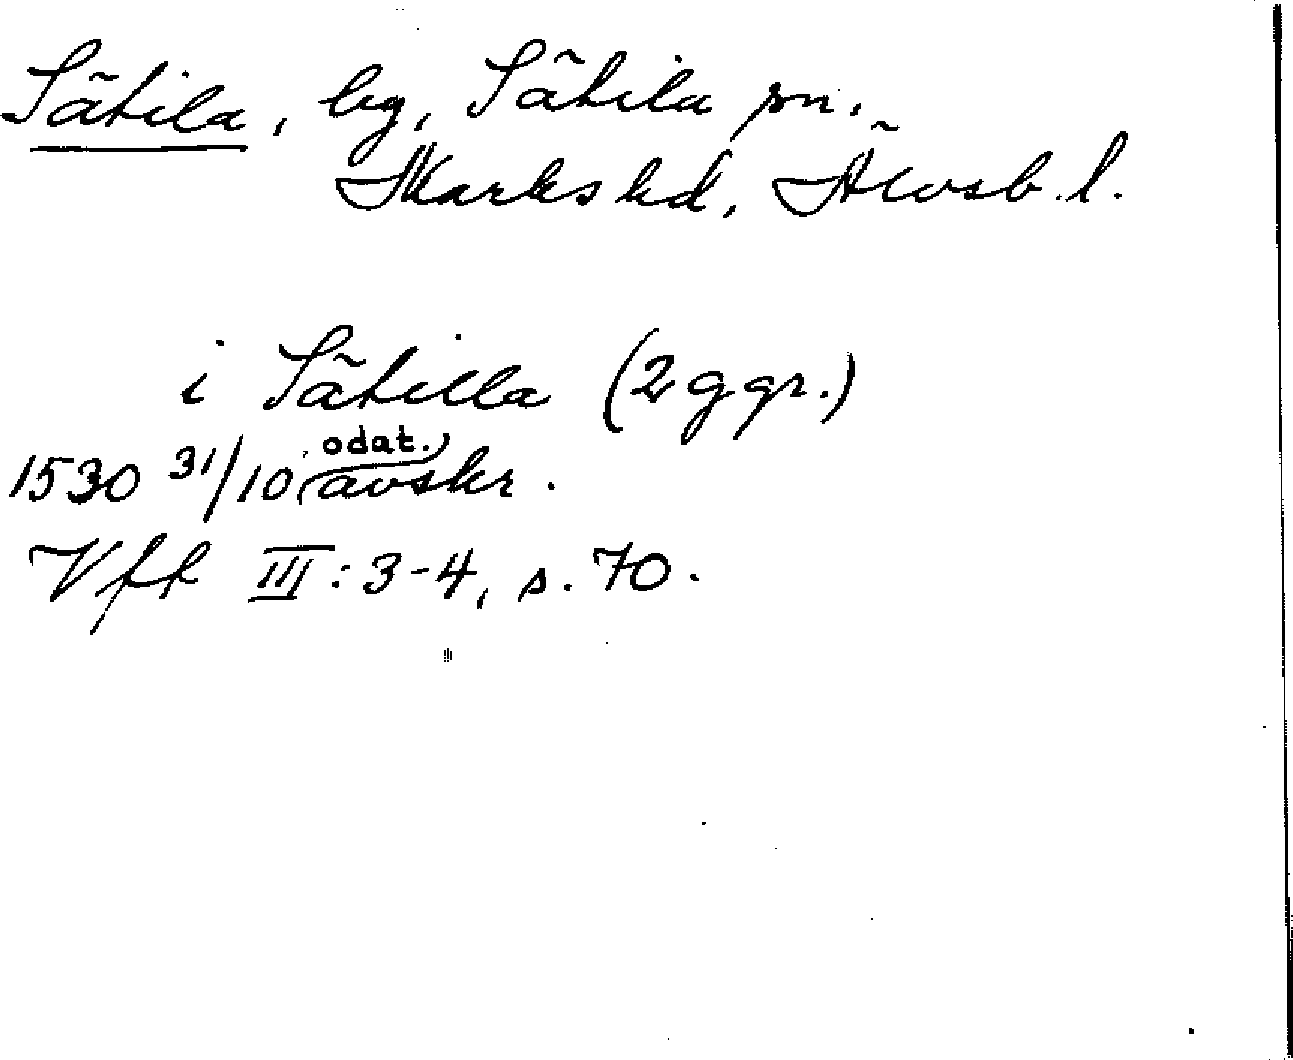 Sätila, by, Sätila sn.
Marks hd, Älvsb. l.
i Sätilla (2 ggr.)
1530 31/10 (odat. avskr.
Vff III: 3-4, s. 70.